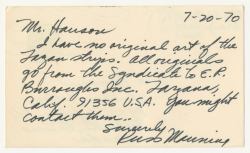 7-20-70
Mr. Hanson
I have no original art of the
Tarzan strips. All originals
go from the Syndicate to E.R.
Burroughs Inc. Tarzana,
Calif. 91356 U.S.A. You might
contact them.
Sincerely
Russ Manning